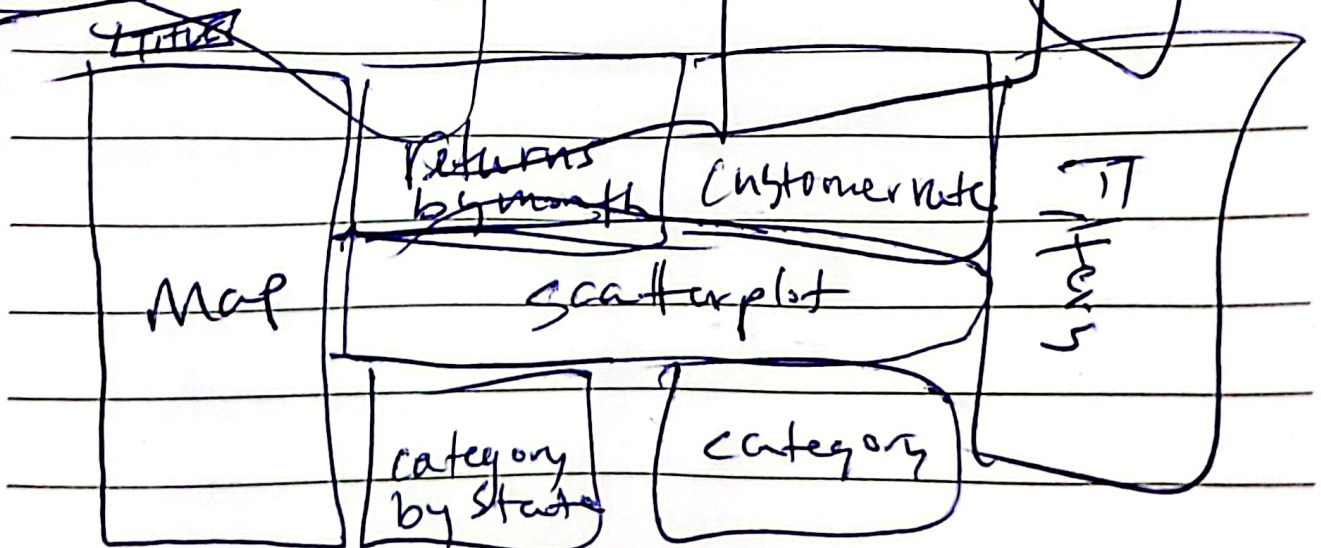 Title
returns
by month
Customer rate
Map
scatterplot
category
by State
category